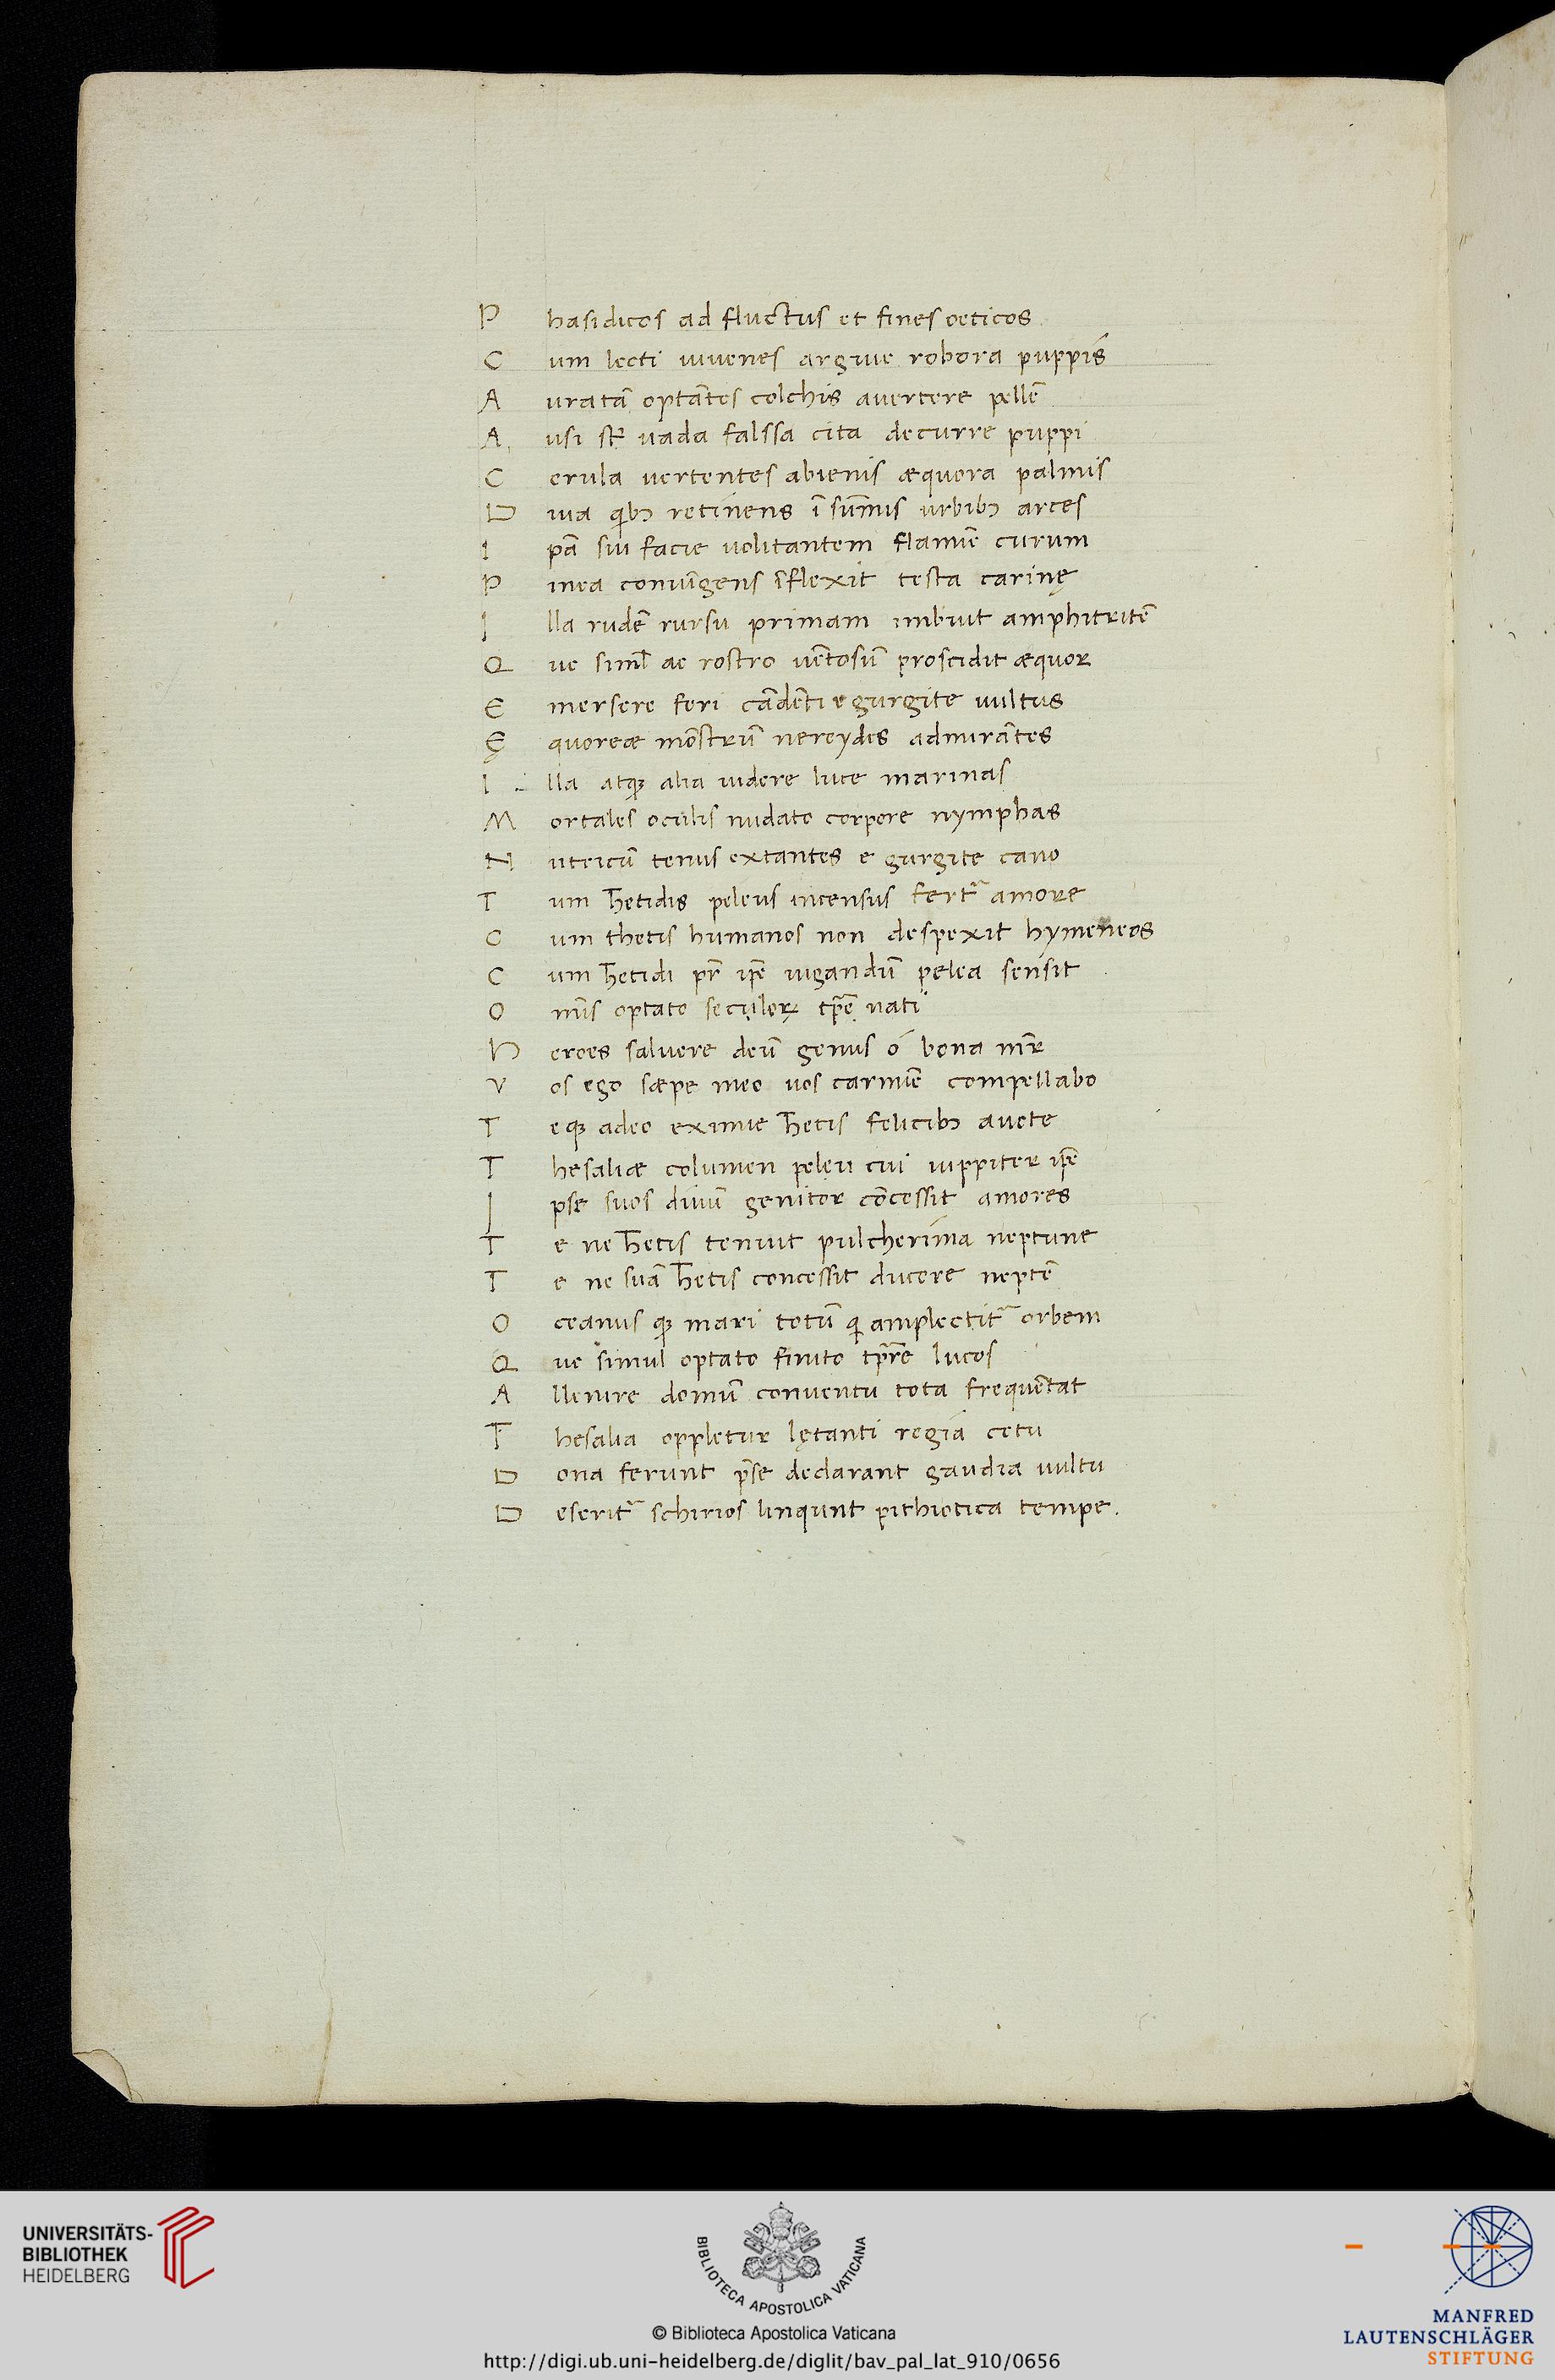 P hasidicos ad fluctus et fines oeticos
C um lecti iuuenes argiue robora puppis
A uratā optātes colchis auertere pellē
A usi st̄ uada falssa cita decurre puppi
C erula uertentes abienis æquora palmis
D iua qibꝫ retinens ī sūmis urbibꝫ arces
I pā siu facie uolitantem flamīe curum
P inea coniūgens īflexit testa carinę
I lla rudē rursu primam imbiut amphitritē
Q ue siml̄ ac rostro uētosū proscidit æquor
E mersere feri cādēti e gurgite uultus
Ę quoreæ mōstrū nereydes admirātes
I lla atqꝫ alia uidere luce marinas
M ortales oculis nudato corpore nymphas
N utricū tenus extantes e gurgite cauo
T um h̄etidis peleus incensus fert᷑ amore
C um thetis humanos non despexit hymeneos
C um h̄etidi pr̄ ip̄e iugandū pelea sensit
O mīs optato seculoꝝ tp̄re nati
H eroes saluere deū genus ó bona mr̄
V os ego sæpe meo uos carmīe compellabo
T eqꝫ adeo eximie h̄etis felicibꝫ auete
T hesaliæ columen peleu cui iuppiter ip̄e
I pse suos diuū genitor cōcessit amores
T e ne h̄etis tenuit pulcherima neptune
T e ne suā h̄etis concessit ducere neptē
O ceanus qꝫ mari totū qi amplectit᷑ orbem
Q ue simul optato finito tp̄re lucos
A lleuire domū conuentu tota frequētat
T hesalia oppletur lętanti regia cetu
D ona ferunt p̄se declarant gaudia uultu
D eserit᷑ schirios linqunt pithiotica tempe.
UNIVERSITÄTS-
BIBLIOTHEK
HEIDELBERG
BIBLIOTECA APOSTOLICA VATICANA
© Biblioteca Apostolica Vaticana
http://digi.ub.uni-heidelberg.de/diglit/bav_pal_lat_910/0656
MANFRED
LAUTENSCHLÄGER
STIFTUNG